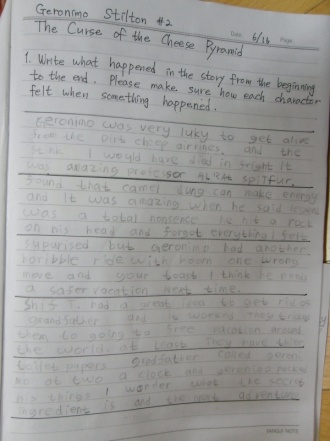 Geronimo Stilton #2
The Curse of the Cheese Pyramid
Date 6/16 Page
1. Write what happened in the story from the beginning
to the end. Please make sure how each character
felt when something happened.
Geronimo was very luky to get alive
from the Dirt cheep airlines and the
stink I would have died in fright It
was amazing profesor spitfur,
found that camel dung can make energy
and It was amazing when he said
was a total nonsense he hit a rock
on his head and forgot everything I felt
suprised but geronimo had another
horrible ride with one wrong
move and your toast I think he needs
a safer vacation next time.
T. had a great idea to get rid of
grandfather and It worked They
them to going to free vacation around
the world at least They have
toilet papers Grandfather called geroni
mo at two a clock and geronimo packed
his things I wonder what the secret
ingredient is and the next adventure